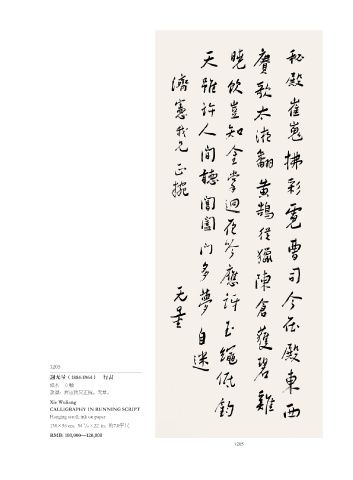 秘殿崔嵬拂彩霓曹司今在殿東西
賡歌太液翻黃鵠從獵陳倉獲碧雞
曉飲豈知金掌迥夜吟應訝玉繩低鈞
天雖許人間聽閶闔門多夢自迷
濟憲我兄正捥 无量
1205
謝无量(1884-1964) 行書
紙本 立軸
款識:濟憲我兄正捥,无量。
Xie Wuliang
CALLIGRAPHY IN RUNNING SCRIPT
Hanging scroll, ink on paper
RMB: 100,000—120,000
1205